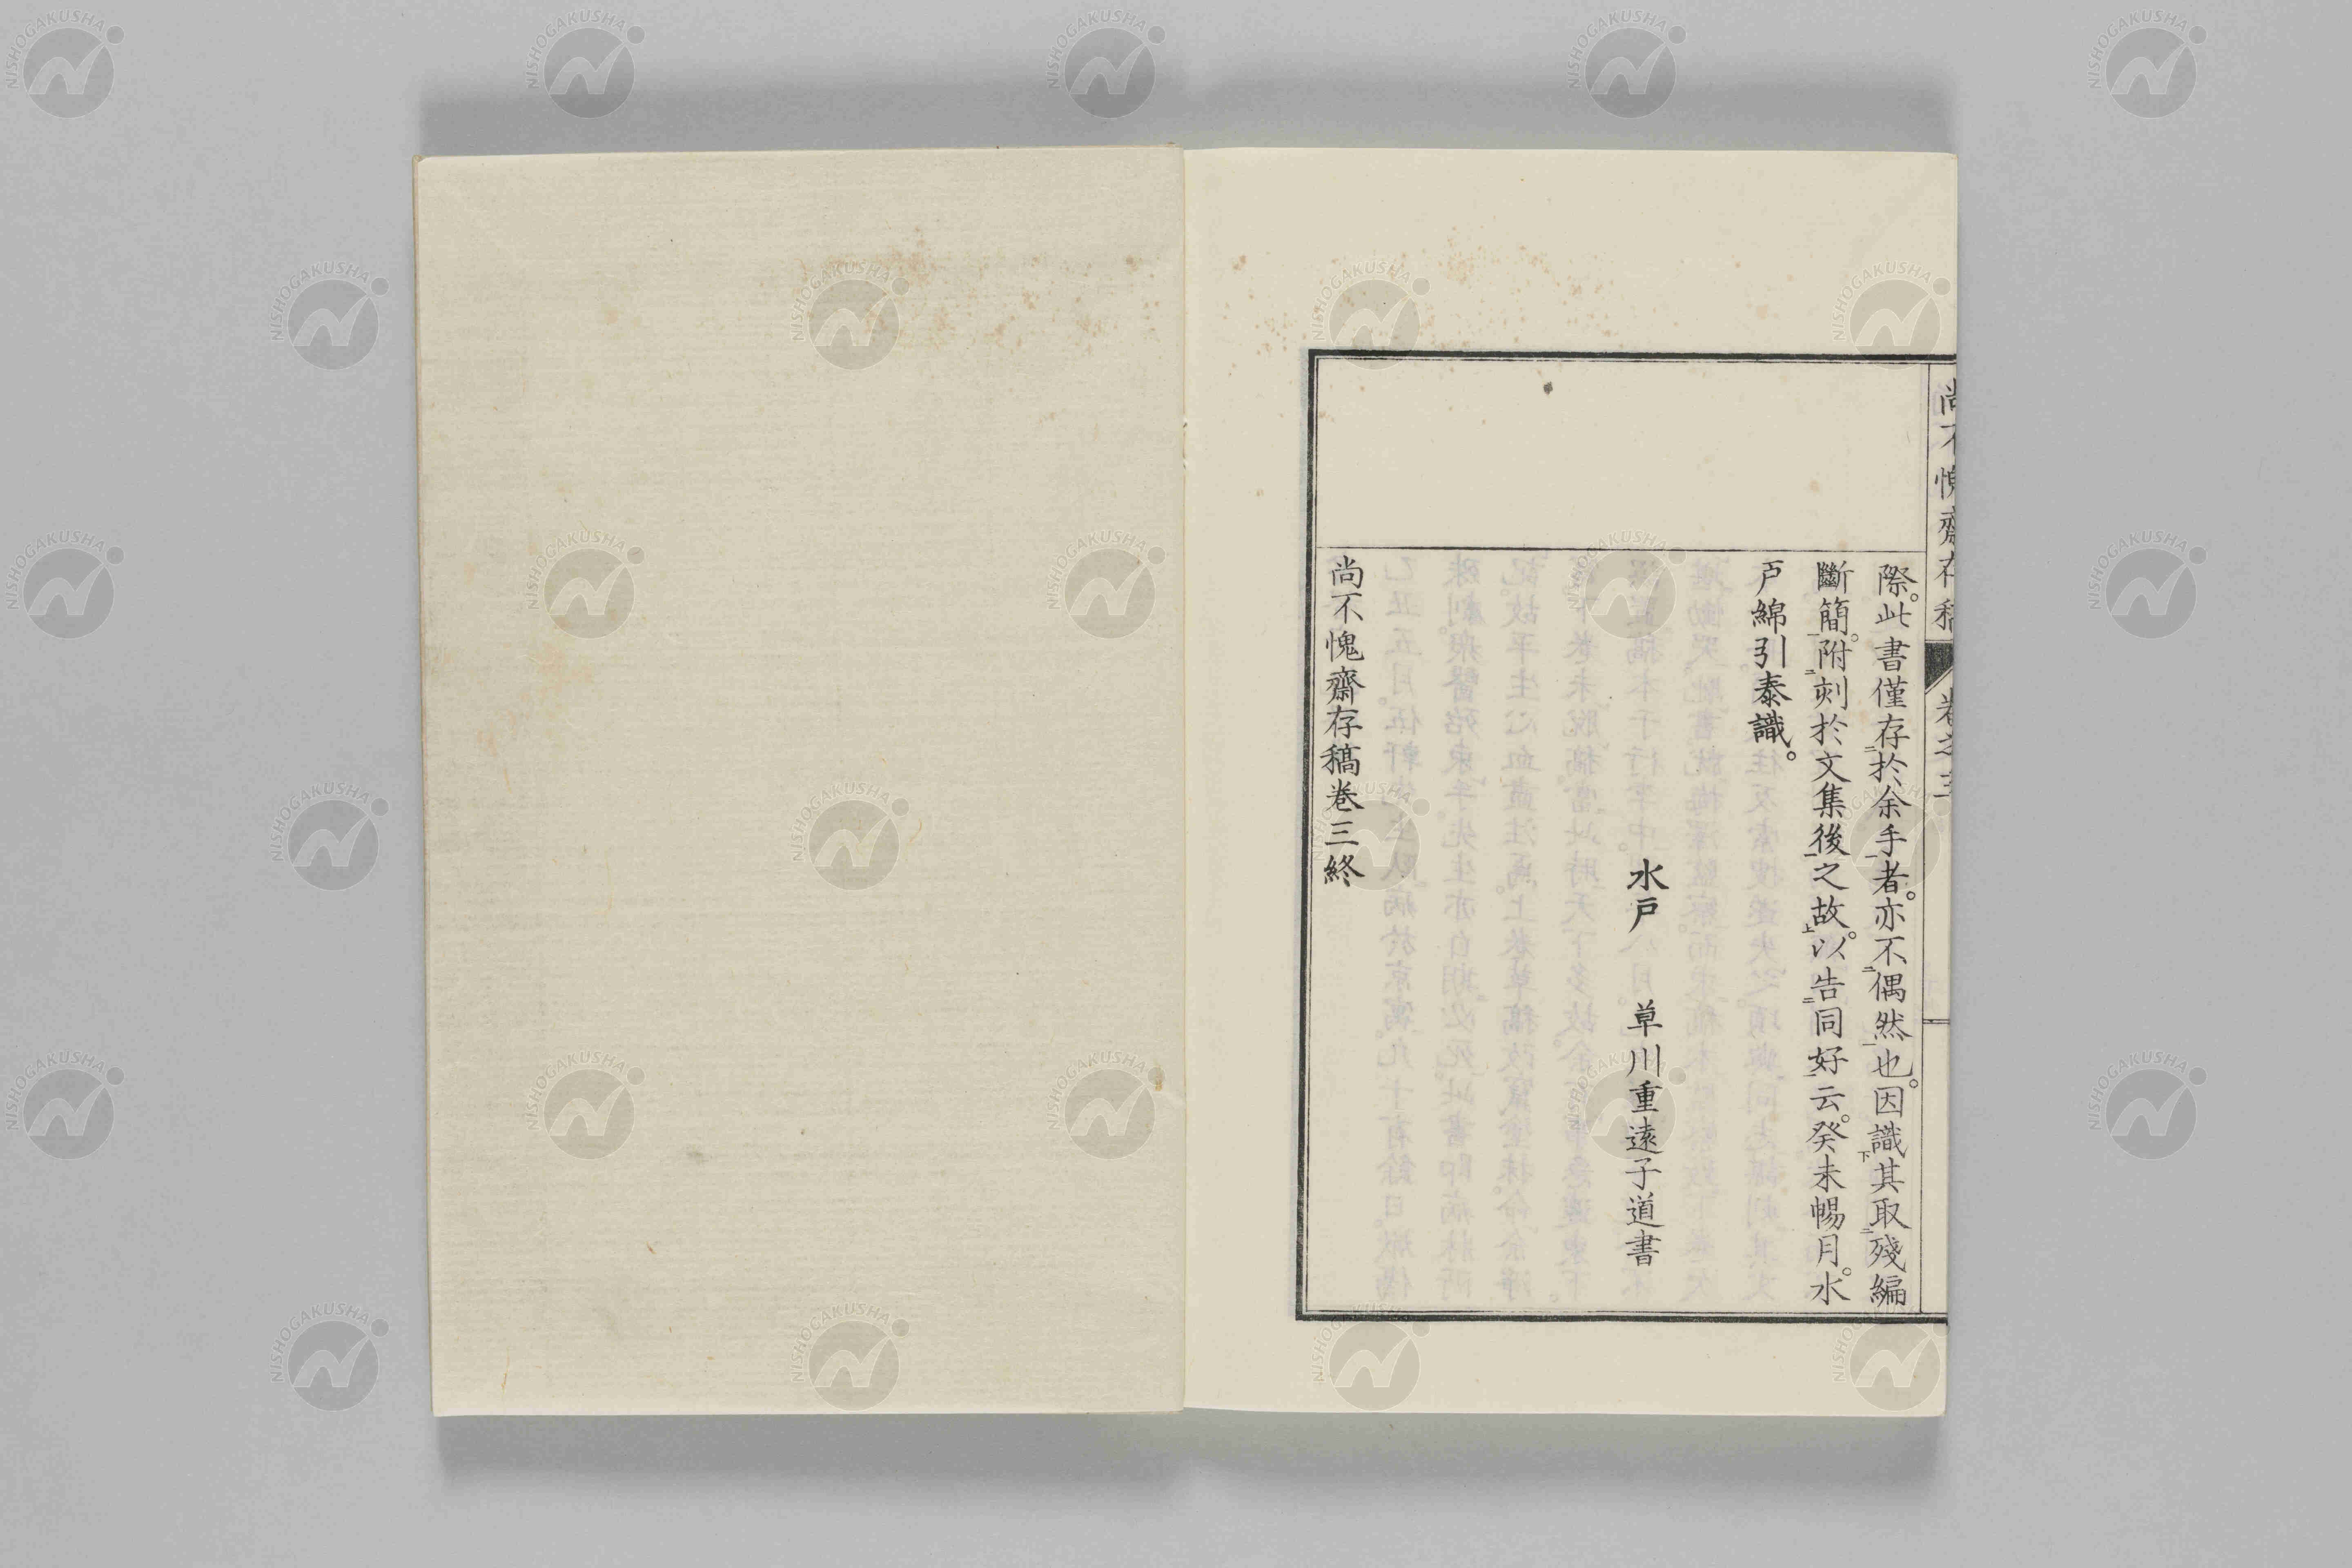 尚不愧齋存稿 卷之三
際。此書僅存於余手者。亦不偶然也。因識其取殘編
斷簡。附刻於文集後之故。以告同好云。癸未暢月。水
戶綿引泰識。
水戶 草川重遠子道書
尚不愧齋存稿卷三終
NISHOGAKUSHA